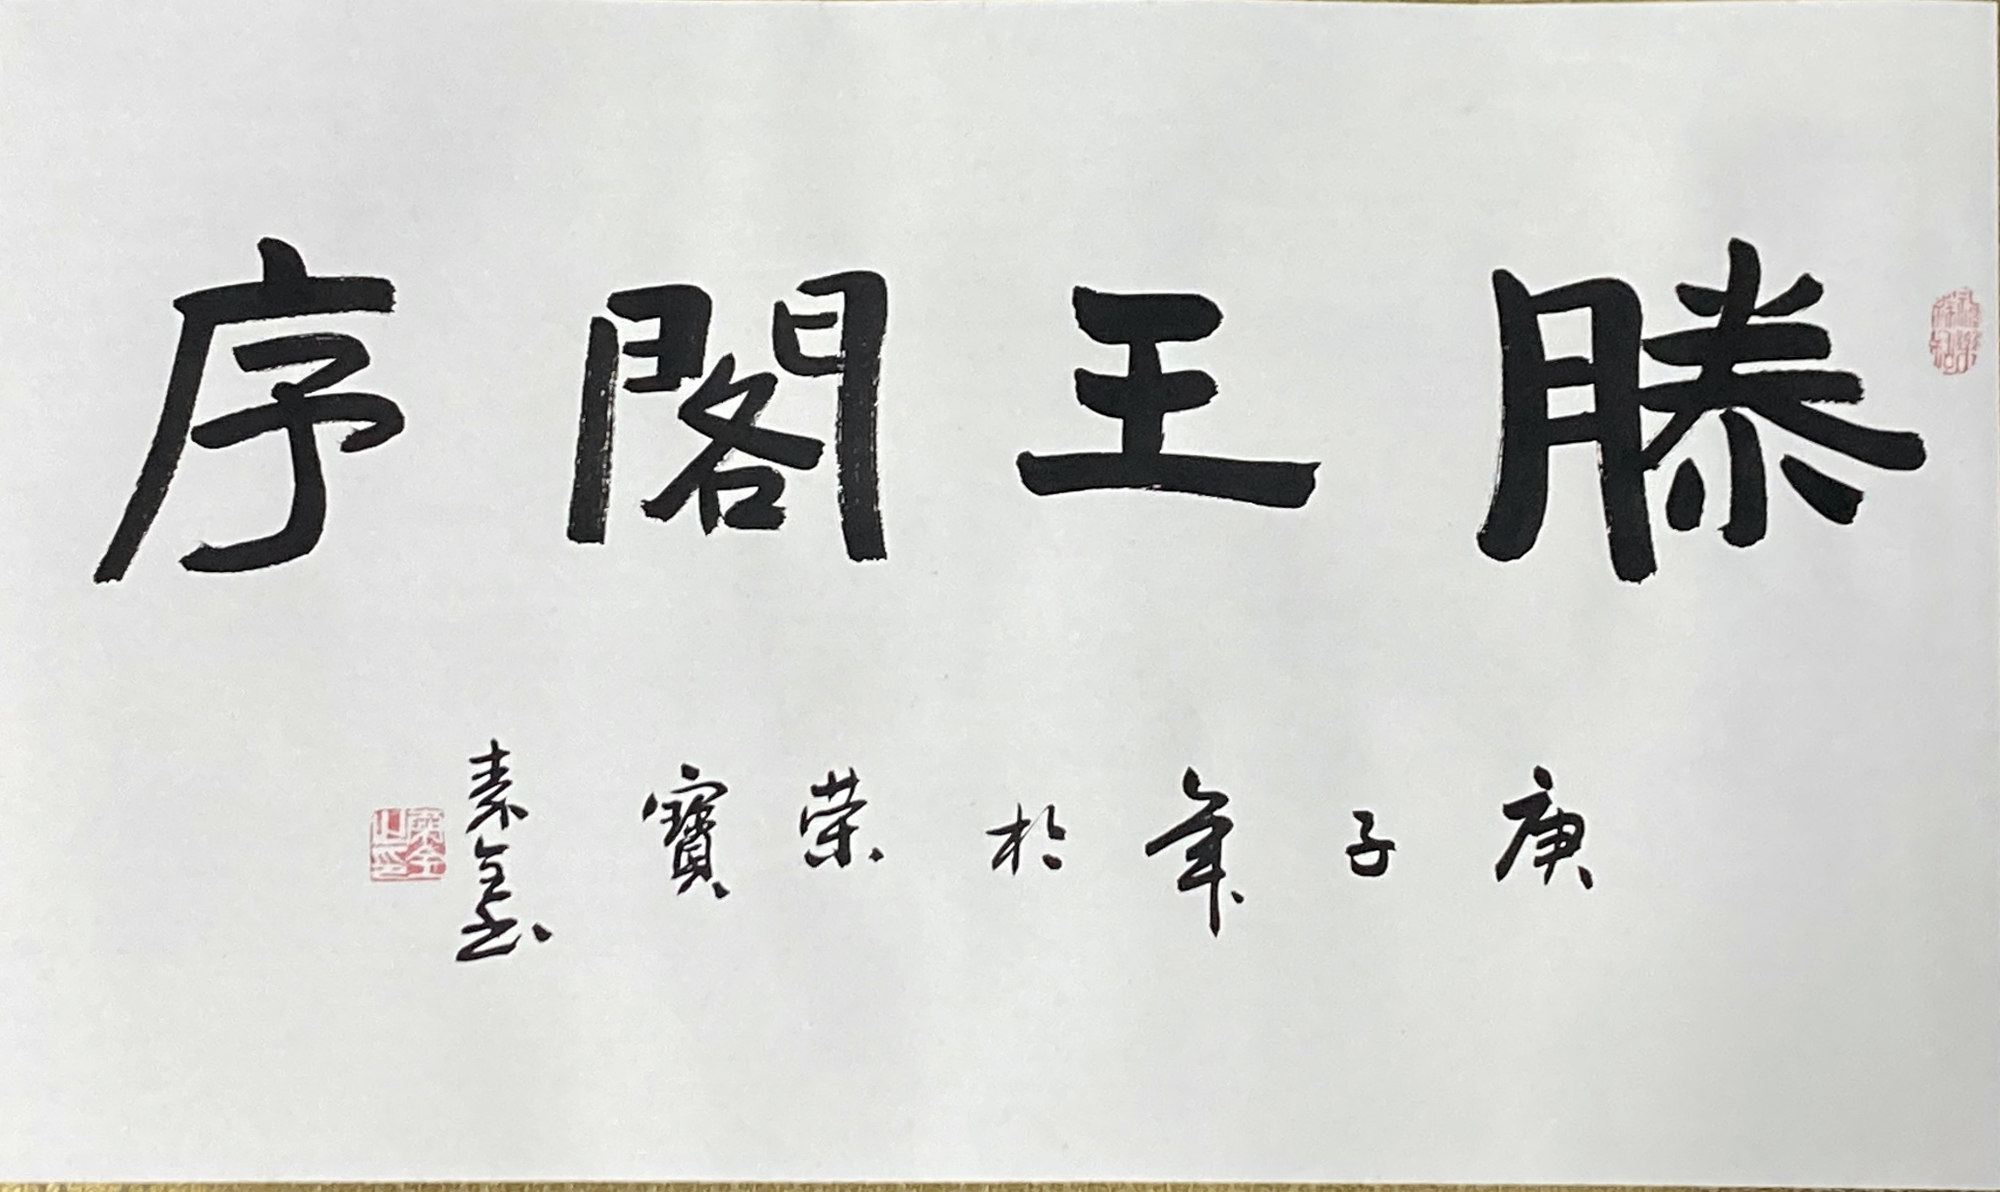 滕王閣序
庚子年於榮寶
素全書